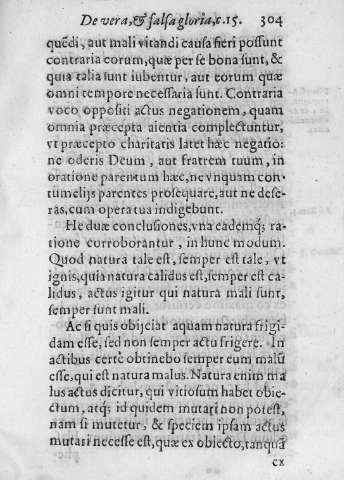 De vera, & falsa gloria, c. 15. 304
quẽdi, aut mali vitandi causa fieri possunt
contraria eorum, quæ per se bona sunt, &
quia talia sunt iubentur, aut eorum quæ
omni tempore necessaria sunt. Contraria
voco oppositi actus negationem, quam
omnia præcepta aientia complectuntur,
vt præcepto charitatis latet hæc negatio:
ne oderis Deum, aut fratrem tuum, in
oratione parentum hæc, ne vnquam con-
tumelijs parentes prosequare, aut ne dese-
ras, cum opera tua indigebunt.
He duæ conclusiones, vna eademq; ra-
tione corroborantur, in hunc modum.
Quod natura tale est, semper est tale, vt
ignis, quia natura calidus est, semper est ca-
lidus, actus igitur qui natura mali sunt,
semper sunt mali.
Ac si quis obijciat aquam natura frigi-
dam esse, sed non semper actu frigere. In
actibus certè obtinebo semper eum malũ
esse, qui est natura malus. Natura enim ma
lus actus dicitur, qui vitiosum habet obie-
ctum, atq; id quidem mutari non potest,
nam si mutetur, & speciem ipsam actus
mutari necesse est, quæ ex obiecto, tanquã
ex